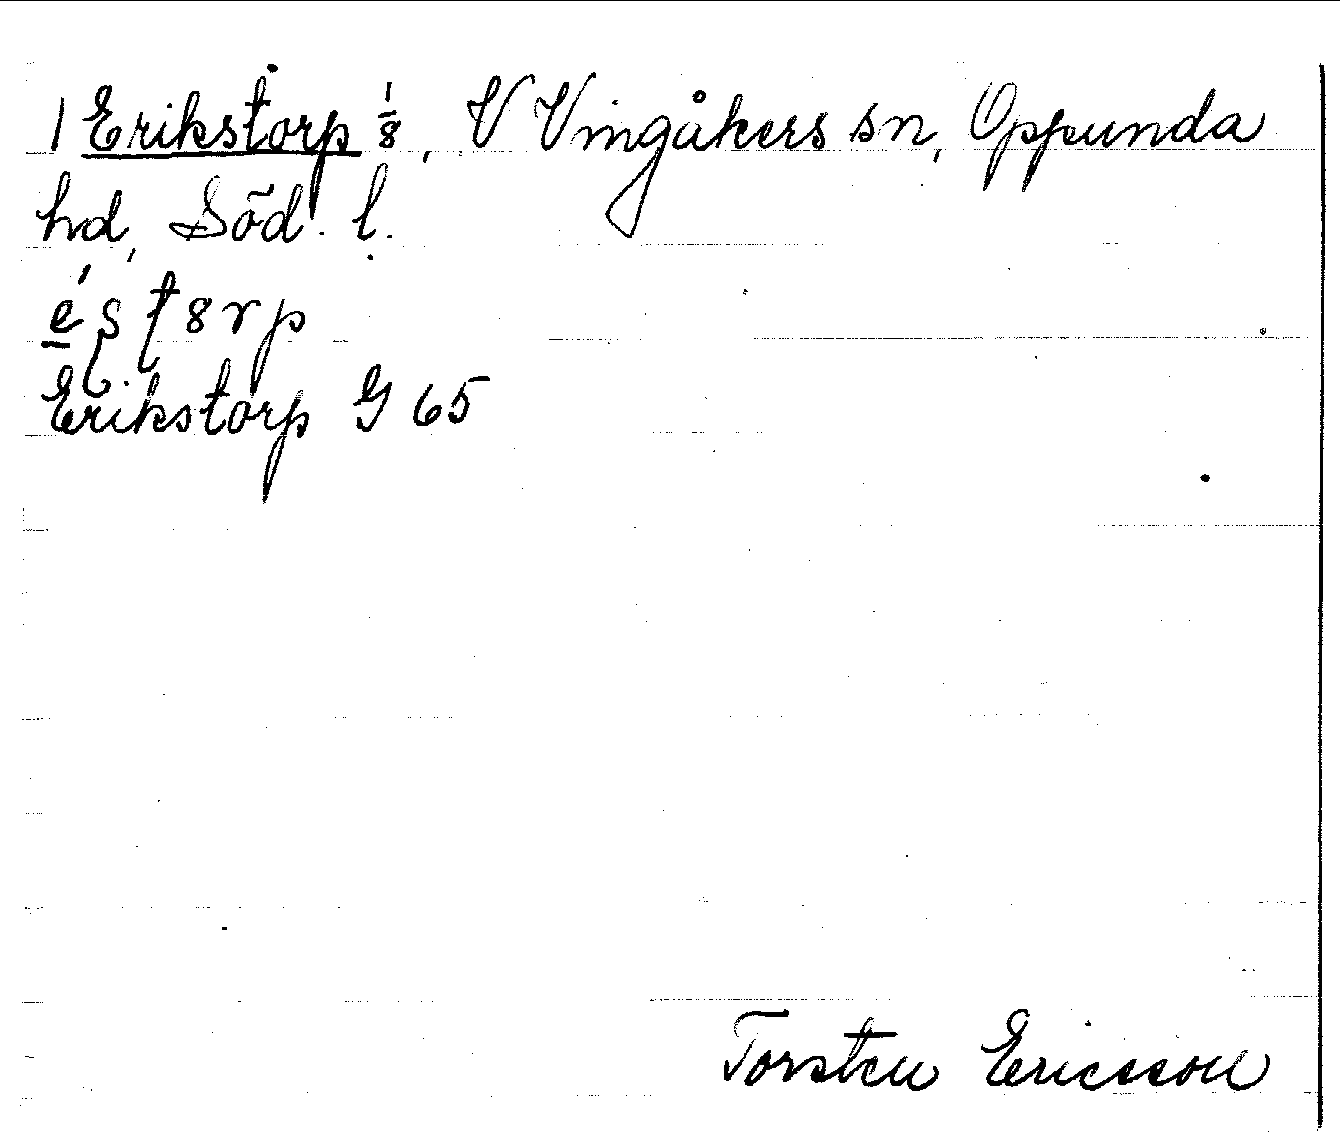 1 Erikstorp 1/8, V Vingåkers sn, Oppunda
hd, Söd. l.
Erikstorp G 65
Torsten Ericsson